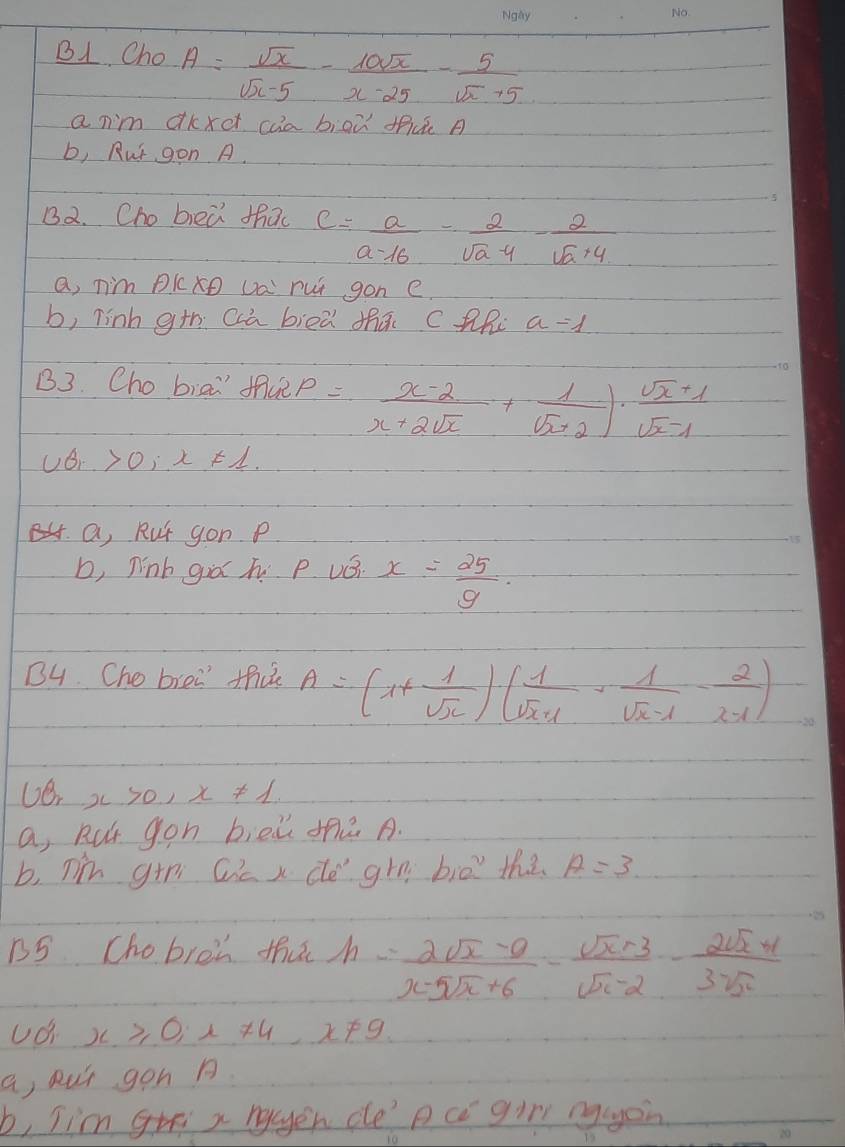 Ngày . . No.
B1. Cho A = √x/(√x-5) - 10√x/(x-25) - 5/(√x+5)
a, Tìm đkxđ của biểu thức A
b, Rút gọn A.
B2. Cho biểu thức C = a/(a-16) - 2/(√a-4) - 2/(√a+4)
a, Tìm ĐKXĐ và rút gọn C
b, Tính gtrị của biểu thức C khi a = 1
B3. Cho biểu thức P = x-2/(x+2√x) + 1/(√x+2)) · (√x+1)/(√x-1)
với >0; x ≠ 1.
a, Rút gọn P
b, Tính giá trị P với x = 25/9.
B4. Cho biểu thức A = (1 + 1/√x)(1/(√x+1) - 1/(√x-1) - 2/(x-1))
Với x >0, x ≠ 1.
a, Rút gọn biểu thức A.
b, Tìm gtrị của x để gtrị biể thức A = 3
B5 Cho biểu thức A = (2√x-9)/(x-5√x+6) - (√x+3)/(√x-2) - (2√x+1)/(3-√x)
với x ≥ 0, x ≠ 4, x ≠ 9.
a, Rút gọn A
b, Tìm x nguyên để A có gtrị nguyên